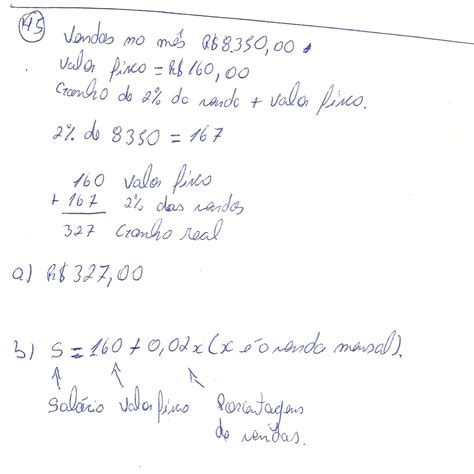 145
Vendas no mês R$8.350,00.
Valor fixo = R$160,00
Ganho de 2% da venda + valor fixo.
2% de 8350 = 167
160 valor fixo
+ 167 2% das vendas
327 Ganho real
a) R$327,00
b) S = 160 + 0,02x (x é a venda mensal).
Salário Valor fixo Porcentagem
de vendas.